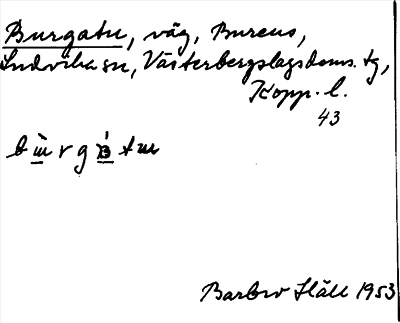 Burgatu, väg, Burens,
Ludvika sn, Västerbergslags doms. tg,
Kopp. l.
43
Barbro Häll 1953